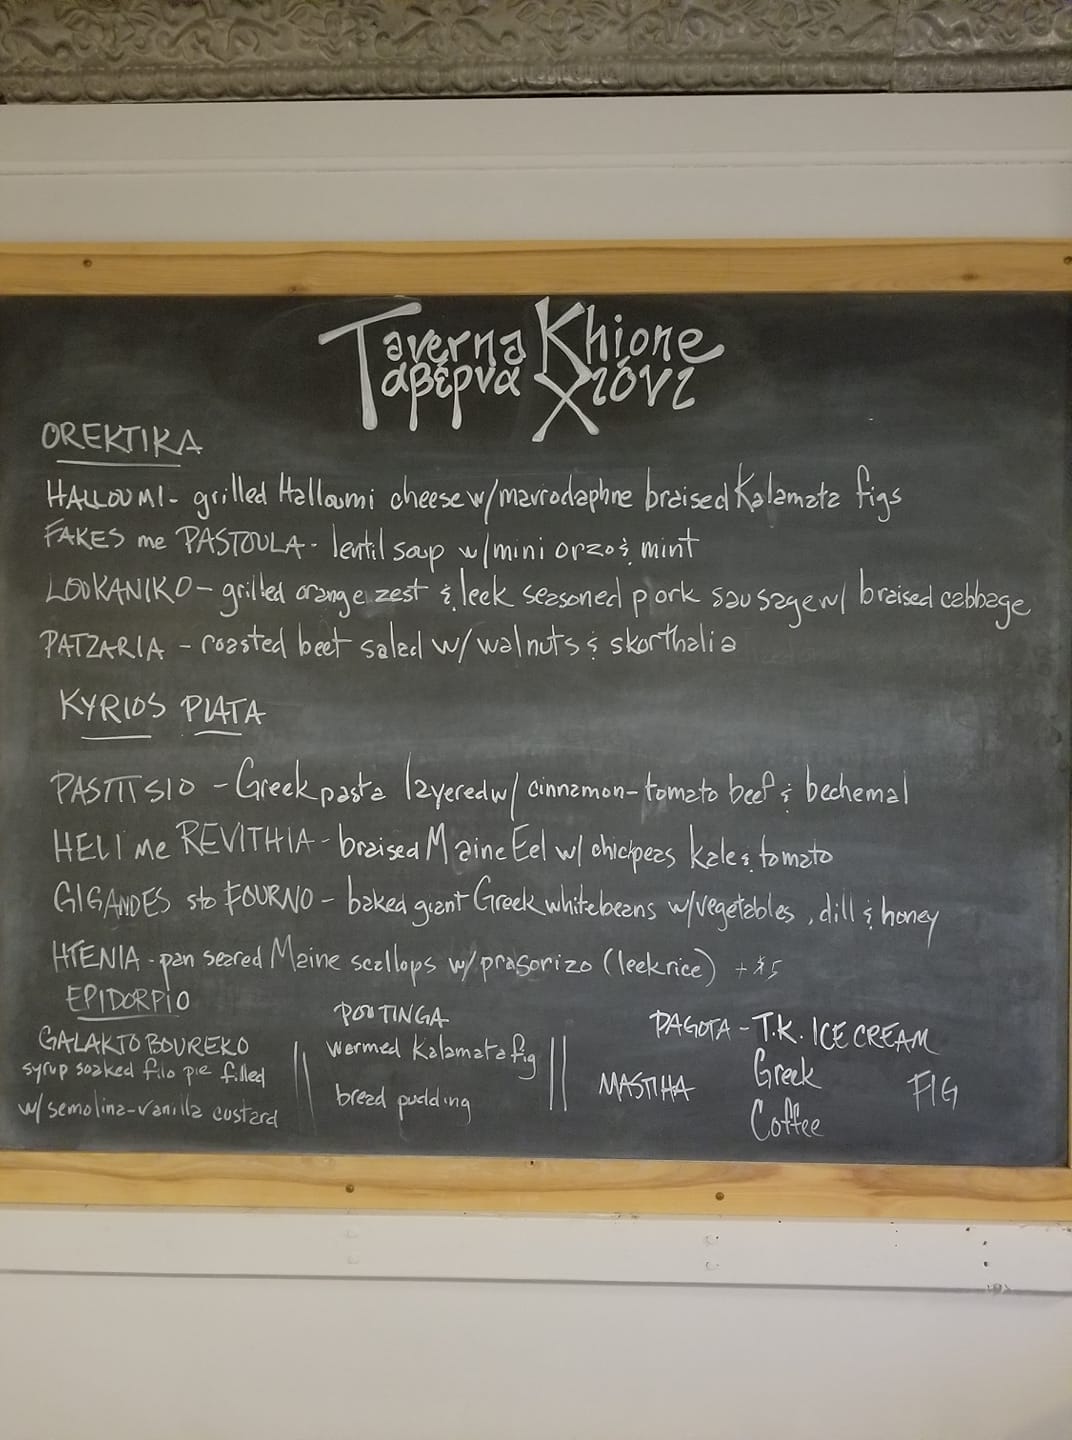 Taverna Khione
Ταβέρνα Χιόνι
OREKTIKA
HALLOUMI- grilled Halloumi cheese w/mavrodaphne braised Kalamata figs
FAKES me PASTOULA- lentil soup w/mini orzo & mint
LOUKANIKO- grilled orange zest & leek seasoned pork sausage w/ braised cabbage
PATZARIA - roasted beet salad w/walnuts & skorthalia
KYRIOS PIATA
PASTITSIO - Greek pasta layered w/ cinnamon-tomato beef & bechemal
HELI me REVITHIA- braised Maine Eel w/ chickpeas kale & tomato
GIGANDES sto FOURNO - baked giant Greek white beans w/vegetables, dill & honey
HTENIA - pan seared Maine scallops w/prasorizo (leek rice) + $5
EPIDORPIO
GALAKTOBOUREKO
syrup soaked filo pie filled
w/semolina-vanilla custard
POUTINGA
warmed Kalamata fig
bread pudding
PAGOTA - T.K. ICE CREAM
MASTIHA
Greek
Coffee
FIG